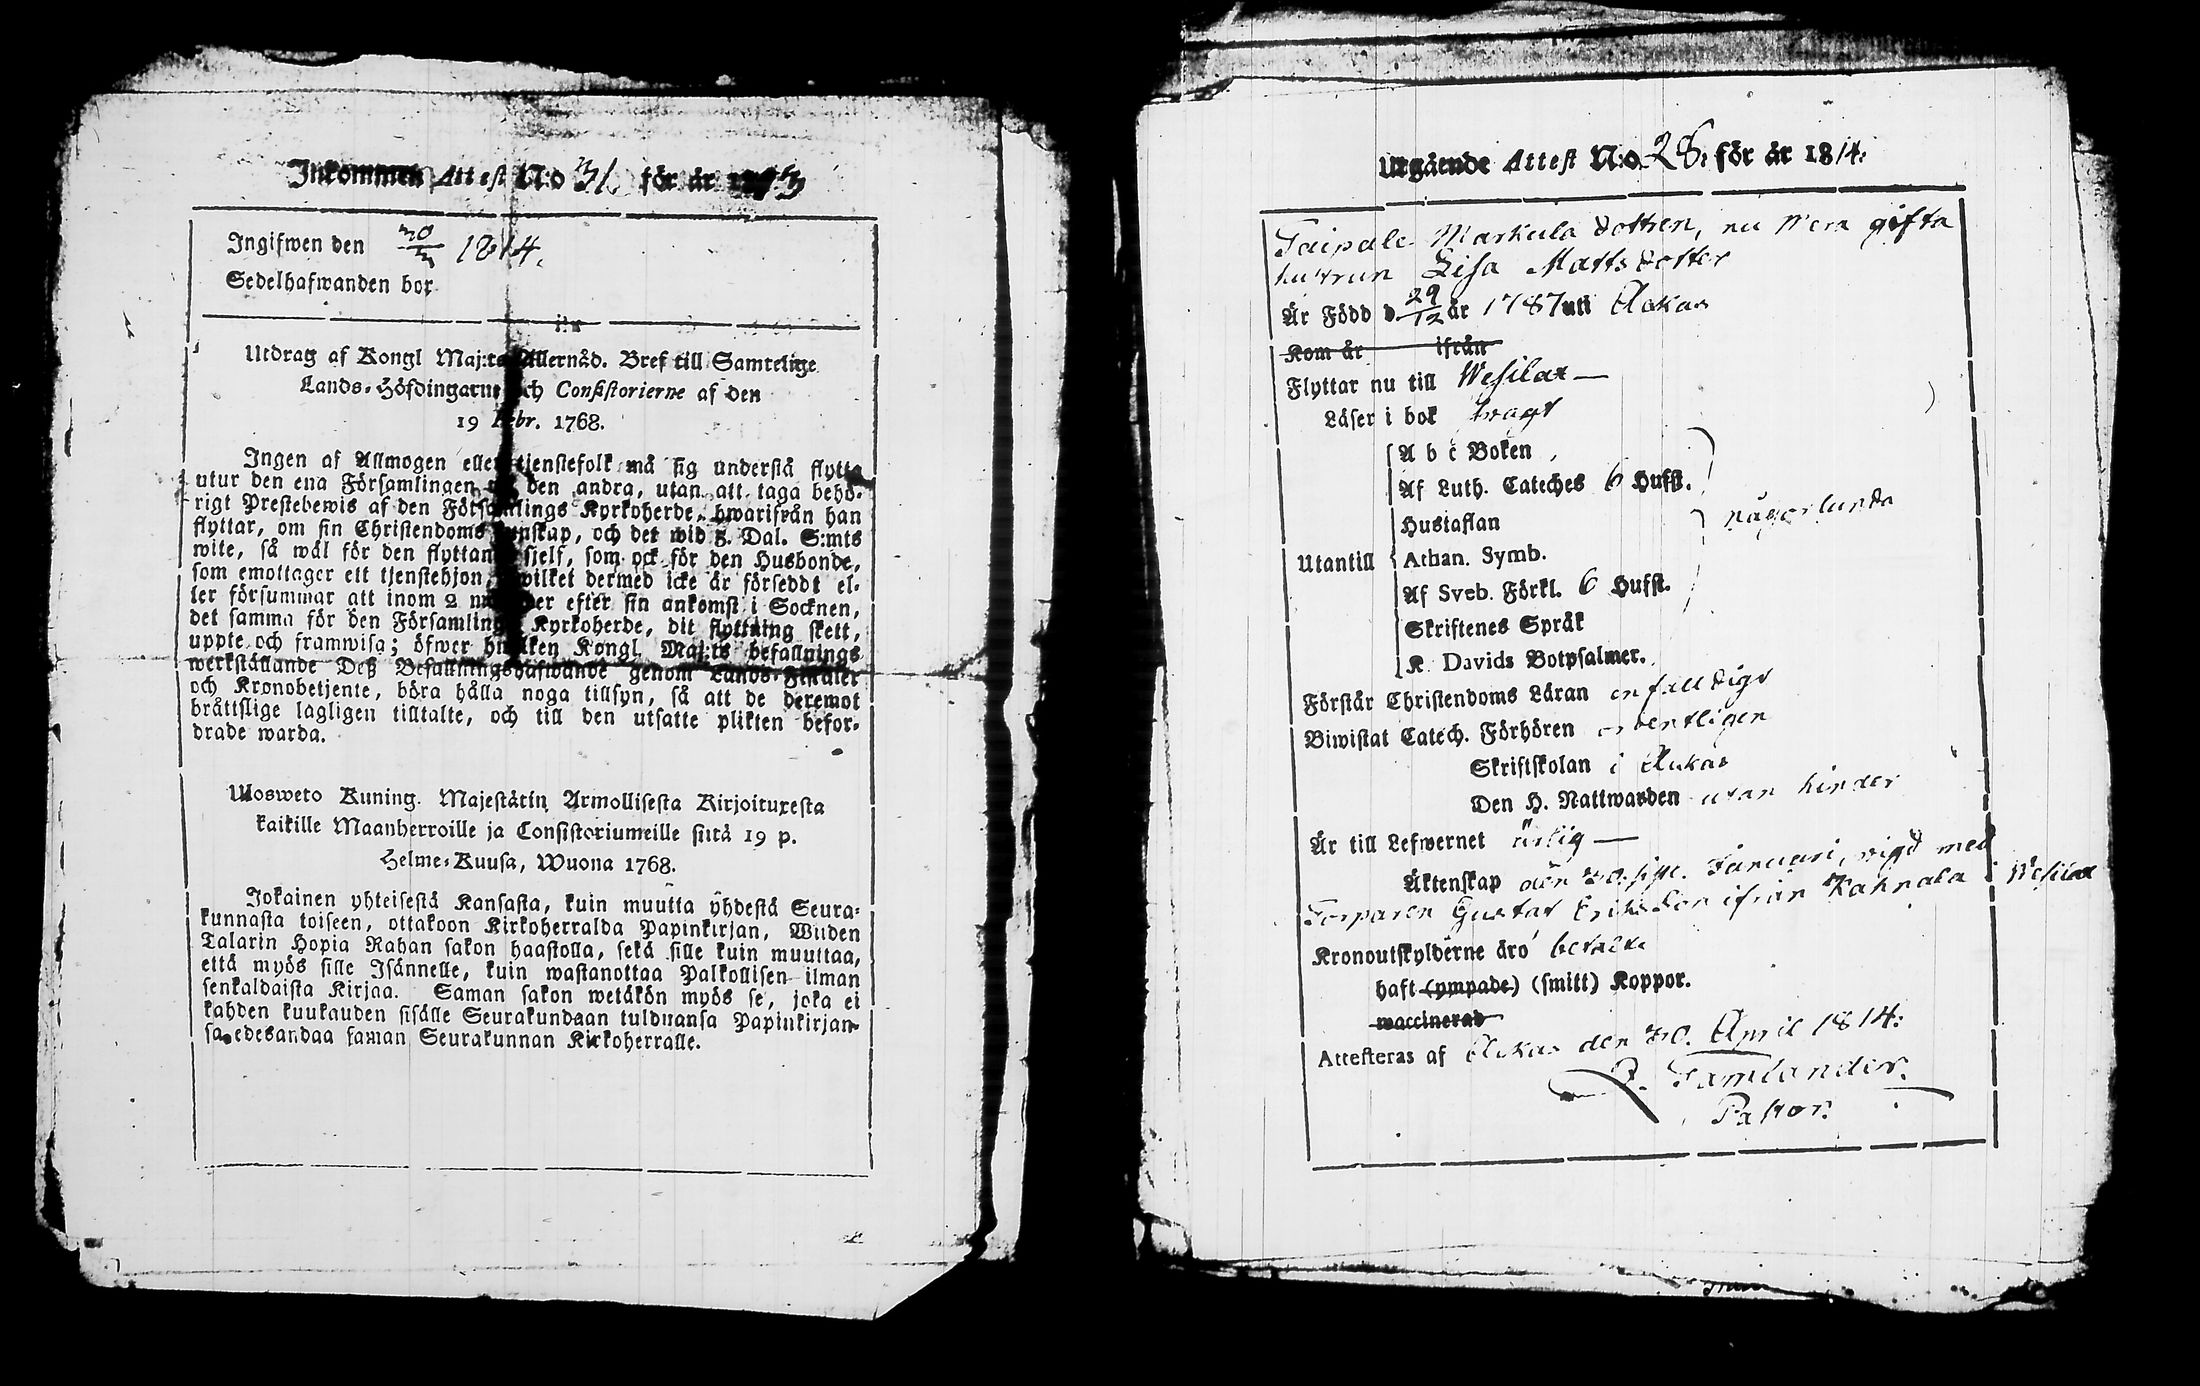 Inkommen Attest N:o 31 för år
Ingifwen den 30/5 1814.
Sedelhafwanden bor
Utdrag af Kongl Maj:ts Allernåd. Bref till Samtelige
Lands-Höfdingarne och Consistorierne af den
19 Febr. 1768.
Ingen af Allmogen eller tjenstefolk må sig understå flytta
utur den ena Församlingen den andra, utan att taga behö-
rigt Prestebewis af den Församlings Kyrkoherde, hwarifrån han
flyttar, om sin Christendoms kunskap, och det wid 5. Dal. S:mts
wite, så wäl för den flyttande sjelf, som ock för den Husbonde,
som emottager ett tjenstehjon, hwilket dermed icke är försedt el-
ler försummar att inom 2 månader efter sin ankomst i Socknen,
det samma för den Församlings Kyrkoherde, dit flyttning skett,
uppte och framwisa; öfwer hwilken Kongl. Maj:ts befallnings
werkställande Deß Befallningshafwande genom Lands-Fiskaler
och Kronobetjente, böra hålla noga tillsyn, så att de deremot
bråttslige lagligen tilltalte, och till den utsatte plikten befor-
drade warda.
Ulosweto Kuning. Majestätin Armollisesta Kirjoituxesta
kaikille Maanherroille ja Consistoriumeille siitä 19 p.
Helme-Kuusa, Wuona 1768.
Jokainen yhteisestä Kansasta, kuin muutta yhdestä Seura-
kunnasta toiseen, ottakoon Kirkoherralda Papinkirjan, Wiiden
Talarin Hopia Rahan sakon haastolla, sekä sille kuin muuttaa,
että myös sille Isännelle, kuin wastanottaa Palkollisen ilman
senkaldaista Kirjaa. Saman sakon wetäkön myös se, joka ei
kahden kuukauden sisälle Seurakundaan tulduansa Papinkirjan-
sa edesandaa saman Seurakunnan Kirkoherralle.
Utgående Attest N:o 28. för år 1814.
Taipale Markula dottren, nu mera gifta
hustrun Lisa Mattsdotter
Är Född d 29/12 år 1787 uti Ackas
Kom år ifrån
Flyttar nu till Wesilax —
Läser i bok swagt
A b c Boken
Af Luth. Cateches 6 Hufst.
Hustaflan
någorlunda
Utantill Athan. Symb.
Af Sveb. Förkl. 6 Hufst.
Skriftenes Språk
K. Davids Botpsalmer.
Förstår Christendoms Läran enfalldigt
Biwistat Catech. Förhören ordentligen
Skriftskolan i Ackas
Den H. Nattwarden utan hinder
Är till Lefwernet ärlig —
Äktenskap den 30. sistl. Januari, vigd med
Torparen Gustaf Eriksson ifrån Kahnala i Wesilax
Kronoutskylderne äro betalte
haft (ympade) (smitt) Koppor.
waccinerad
Attesteras af Ackas den 30. April 1814.
Tamlander.
Pastor.